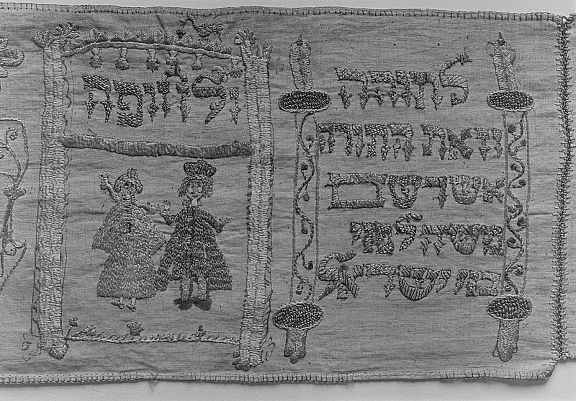 לתורה
וזאת התורה
אשר שם
משה לפני
בני ישראל
ולחופה